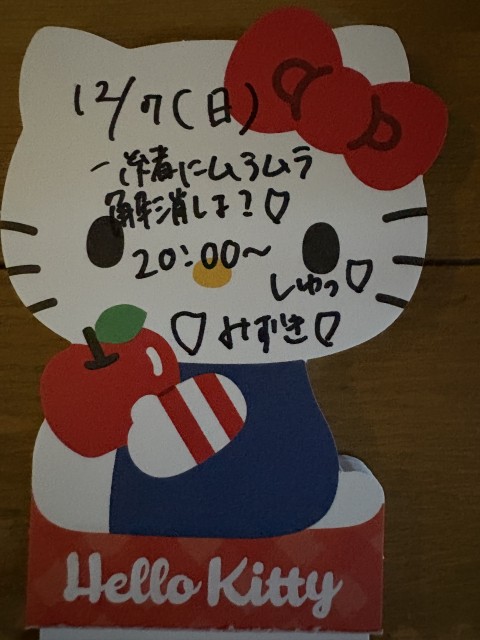 12/7(日)
一緒にムラムラ
解消しよ?♡
20:00〜
しゅっ♡
♡みずき♡
Hello Kitty